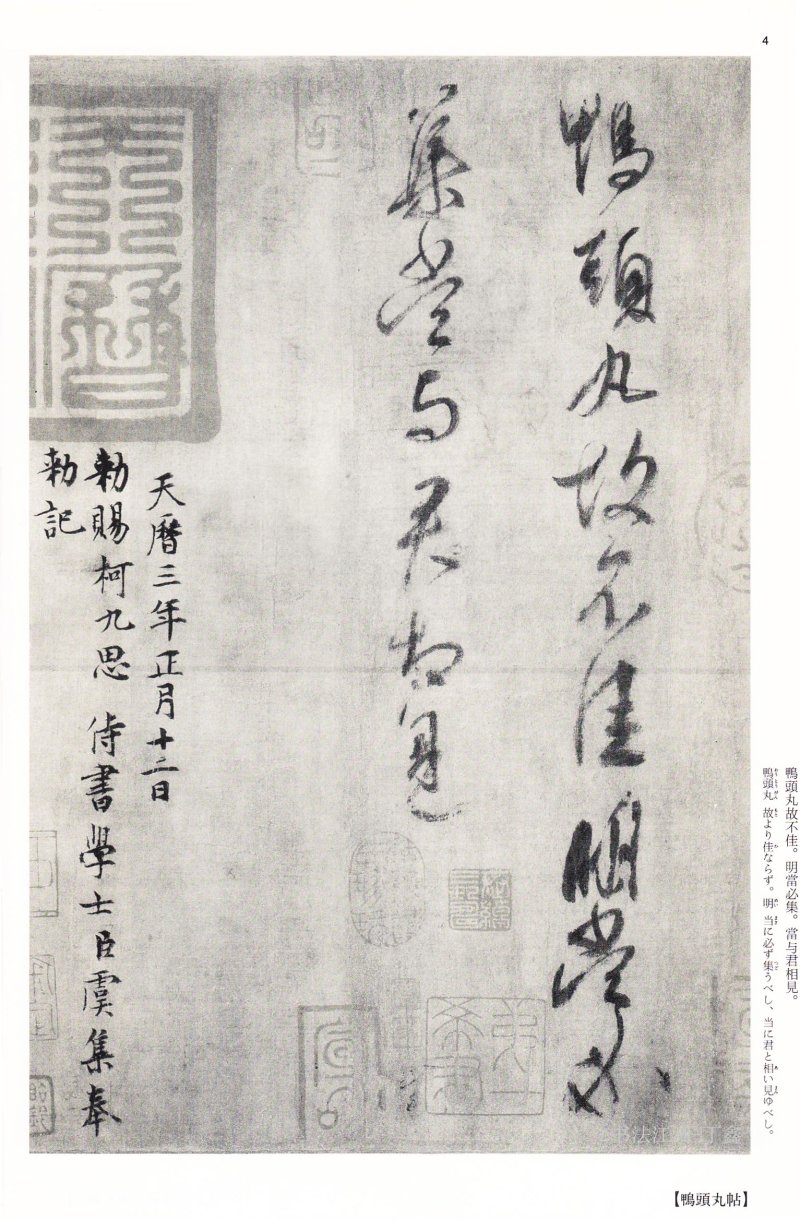 4
鴨頭丸故不佳明當必
集當与君相見
天曆三年正月十二日
勑賜柯九思侍書學士臣虞集奉
勑記
鴨頭丸故不佳。明當必集。當与君相見。
鴨頭丸 故より佳ならず。明 当に必ず集うべし、当に君と相い見ゆべし。
【鴨頭丸帖】